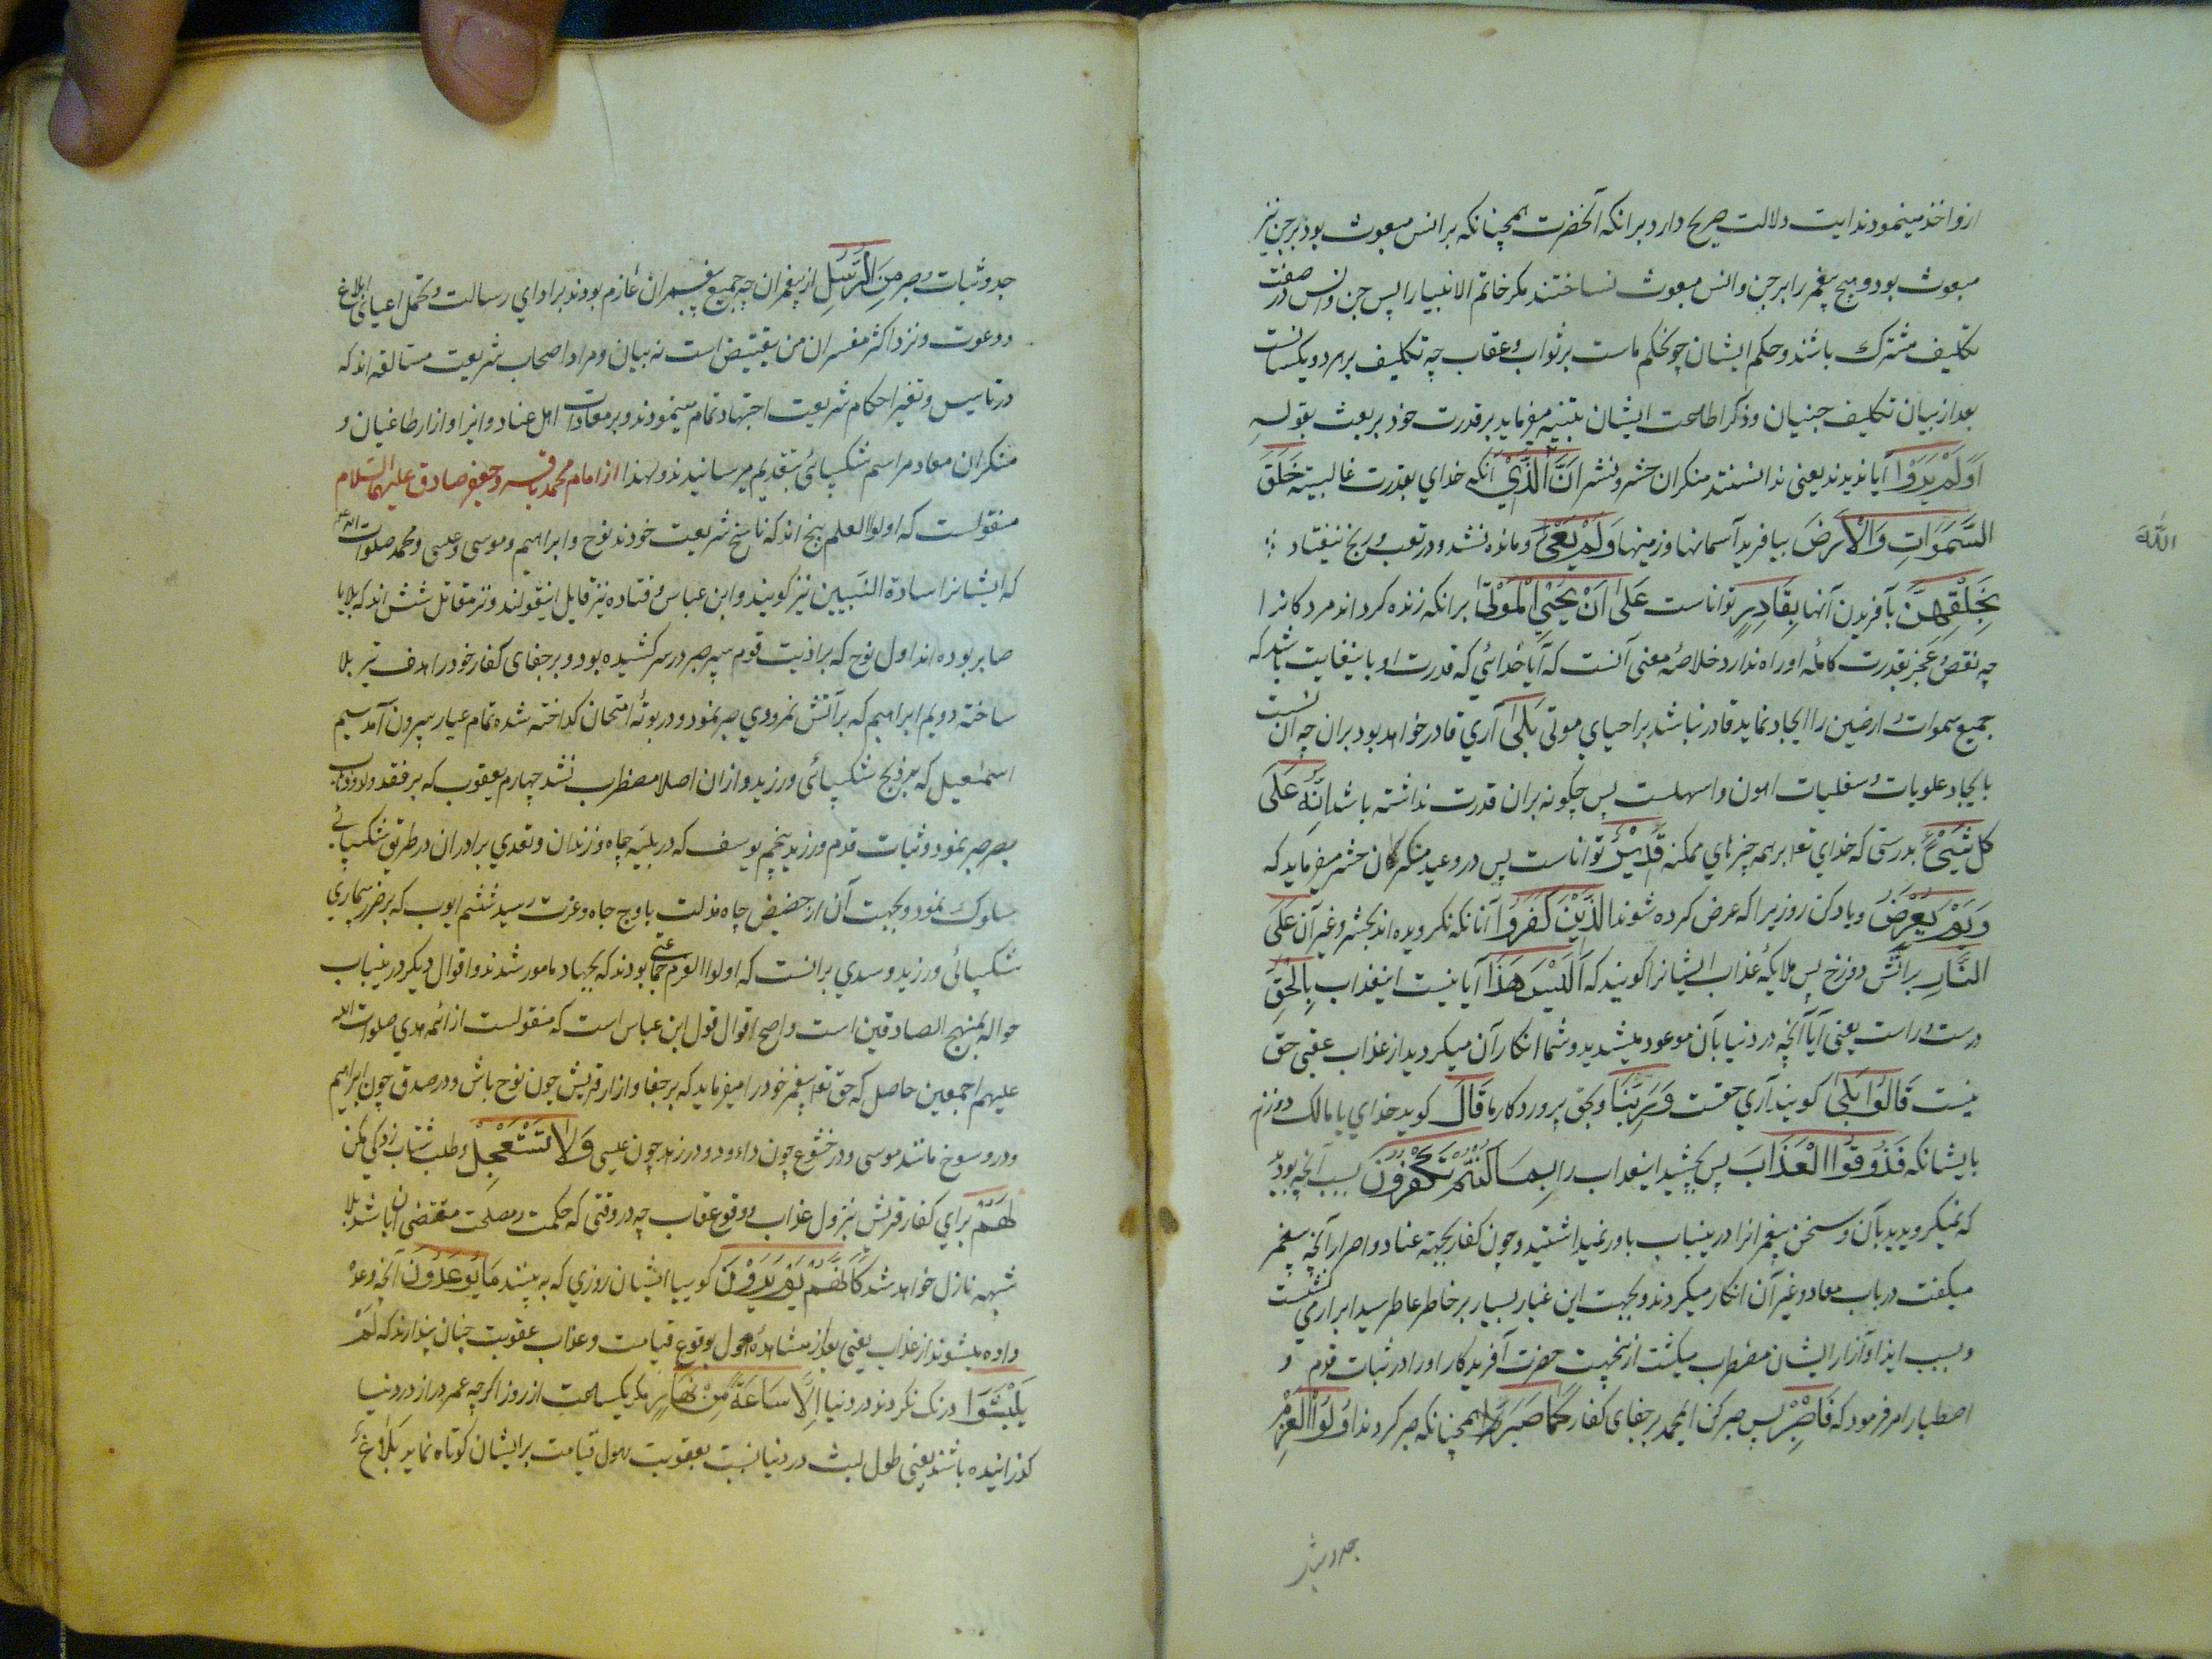 ازو اخذ مینمودند ایت دلالت صریح دارد برانکه آنحضرت همچنانکه بر انس مبعوث بود بر جن نیز
مبعوث بود و هیچ پیغمبر را بر جن و انس مبعوث نساختند مکر خاتم الانبیا را پس جن و انس در صفت
تکلیف مشترک باشند و حکم ایشان چو نحکم ماست بر ثواب و عقاب چه تکلیف بر هر دو یکسانست
بعد از بیان تکلیف جنیان و ذکر اطاعت ایشان تنبیه میفرماید بر قدرت خود بر بعث بقوله
اَوَلَمْ یَرَوْا آیا ندیدند یعنی ندانستند منکران حشر و نشر اَنَّ اللَّذِیْ آنکه خدای بقدرت غالبیته خَلَقَ
السَّمٰوَاتِ وَالْاَرْضَ بیافرید آسمانها و زمینها وَلَمْ یَعْیَ و مانده نشد و در تعب و رنج نیفتاد
بِخَلْقِهِنَّ بآفریدن آنها بِقَادِرٍ تواناست عَلٰی اَنْ یُحْیِیَ الْمَوْتٰی برانکه زنده کرداند مردکانرا
چه نقص و عجز بقدرت کامله او راه ندارد خلاصه معنی آنست که آیا خدائی که قدرت او باینغایت باشد که
جمیع سموات و ارضین را ایجاد نماید قادر نباشد بر احیای موتی بَلٰی آری قادر خواهد بود بران چه آن نسبت
بایجاد علویات و سفلیات اهون و اسهلست پس چکونه بران قدرت نداشته باشد اِنَّهُ عَلٰی
کُلِّ شَیْءٍ بدرستی که خدای تعا بر همه چیزهای ممکنه قَدِیْرٌ تواناست پس در وعید منکران حشر میفرماید که
وَیَوْمَ یُعْرَضُ و یاد کن روزیرا که عرض کرده شوند الَّذِیْنَ کَفَرُوْا آنانکه نکرویده اند بحشر و غیر آن عَلَی
النَّارِ بر آتش دوزخ پس ملایکه عذاب ایشانرا کویند که اَلَیْسَ هٰذَا آیا نیست اینعذاب بِالْحَقِّ
درست و راست یعنی آیا آنچه در دنیا بآن موعود میشدید و شما انکار آن میکردید از عذاب عقبی حق
نیست قَالُوْا بَلٰی کویند آری حقست وَرَبِّنَا و بحق پروردکار ما قَالَ کوید خدای یا مالک دوزخ
بایشانکه فَذُوْقُوا الْعَذَابَ پس بچشید اینعذاب را بِمَا کُنْتُمْ تَکْفُرُوْنَ بسبب آنچه بودید
که نمیکرویدید بآن و سخن پیغمبرانرا درینباب باور نمیداشتید و چون کفار بجهه عناد و اصرار آنچه پیغمبر
میکفت در باب معاد و غیر آن انکار میکردند و بجهت این غبار بسیار بر خاطر عاطر سید ابرار می نشست
و بسبب ایذا و آزار ایشان مضطرب میکشت ازینجهت حضرت آفریدکار او را در ثبات قدم و
اصطبار امر فرمود که فَاصْبِرْ پس صبر کن ایمحمد بر جفای کفار کَمَا صَبَرَ همچنانکه صبر کردند اُولُوا الْعَزْمِ
جد و ثبات
الله
جد و ثبات و صبر مِنَ الرُّسُلِ از پیغمبران چه جمیع پیغمبران عازم بودند بر ادای رسالت و تحمل اعیائی ابلاغ
و دعوت و نزد اکثر مفسران من تبعیض است نه بیان و مراد اصحاب شریعت اند که
در تاسیس و تغیر احکام شریعت اجتهاد تمام مینمودند و بر معادات اهل عناد و ایذا و ازار طاغیان و
منکران معاد مراسم شکیبائی بتقدیم میرسانیدند و لهذا از امام محمد باقر و جعفر صادق علیهما السلام
منقولست که اولوا العلم پنج اند که ناسخ شریعت خودند نوح و ابراهیم و موسی و عیسی و محمد صلوات الله
که ایشانرا سادة النبیین نیز کویند و ابن عباس و قتاده نیز قایل اینقولند و نزد مقاتل شش اند که ببلایا
صابر بوده اند اول نوح که بر اذیت قوم سپر صبر در سر کشیده بود و بر جفای کفار خود را هدف تیر بلا
ساخته دویم ابراهیم که بر آتش نمرودی صبر نمود و در بوته امتحان کداخته شده تمام عیار بیرون آمد سیم
اسمعیل که بر ذبح شکیبائی ورزید و ازان اصلا مضطرب نشد چهارم یعقوب که بر فقد ولد
بصر صبر نمود و ثبات قدم ورزید پنجم یوسف که در بلیه چاه و زندان و تعدی برادران در طریق شکیبائی
سلوک نمود و بجهت آن از حضیض چاه مذلت باوج جاه و عزت رسید ششم ایوب که بر ضرر بیماری
شکیبائی ورزید و سدی برانست که اولوا العزم جماعتی بودند که بجهاد مامور شدند و اقوال دیکر درینباب
حواله بمنهج الصادقین است و اصح اقوال قول ابن عباس است که منقولست از ائمه هدی صلوات الله
علیهم اجمعین حاصل که حق تعا پیغمبر خود را میفرماید که بر جفا و ازار قریش چون نوح باش و در صدق چون ابراهیم
و در رسوخ مانند موسی و در خشوع چون داود و در زهد چون عیسی وَلَا تَسْتَعْجِلْ و طلب شتاب زدکی مکن
لَهُمْ برای کفار قریش بنزول عذاب و وقوع عقاب چه در وقتی که حکمت و مصلحت مقتضی آن باشد بلا
شبهه نازل خواهد شد کَاَنَّهُمْ یَوْمَ یَرَوْنَ کوییا ایشان روزی که ببینند مَا یُوْعَدُوْنَ آنچه وعده
داده میشوند از عذاب یعنی بعد از مشاهده هول وقوع قیامت و عذاب عقوبت چنان پندارند که لَمْ
یَلْبَثُوْا درنک نکردند در دنیا اِلَّا سَاعَةً مِنْ نَهَارٍ مکر یکساعت از روز اکرچه عمر دراز در دنیا
کذرانیده باشند یعنی طول لبث در دنیا نسبت بعقوبت هول قیامت بر ایشان کوتاه نماید بَلَاغٌ